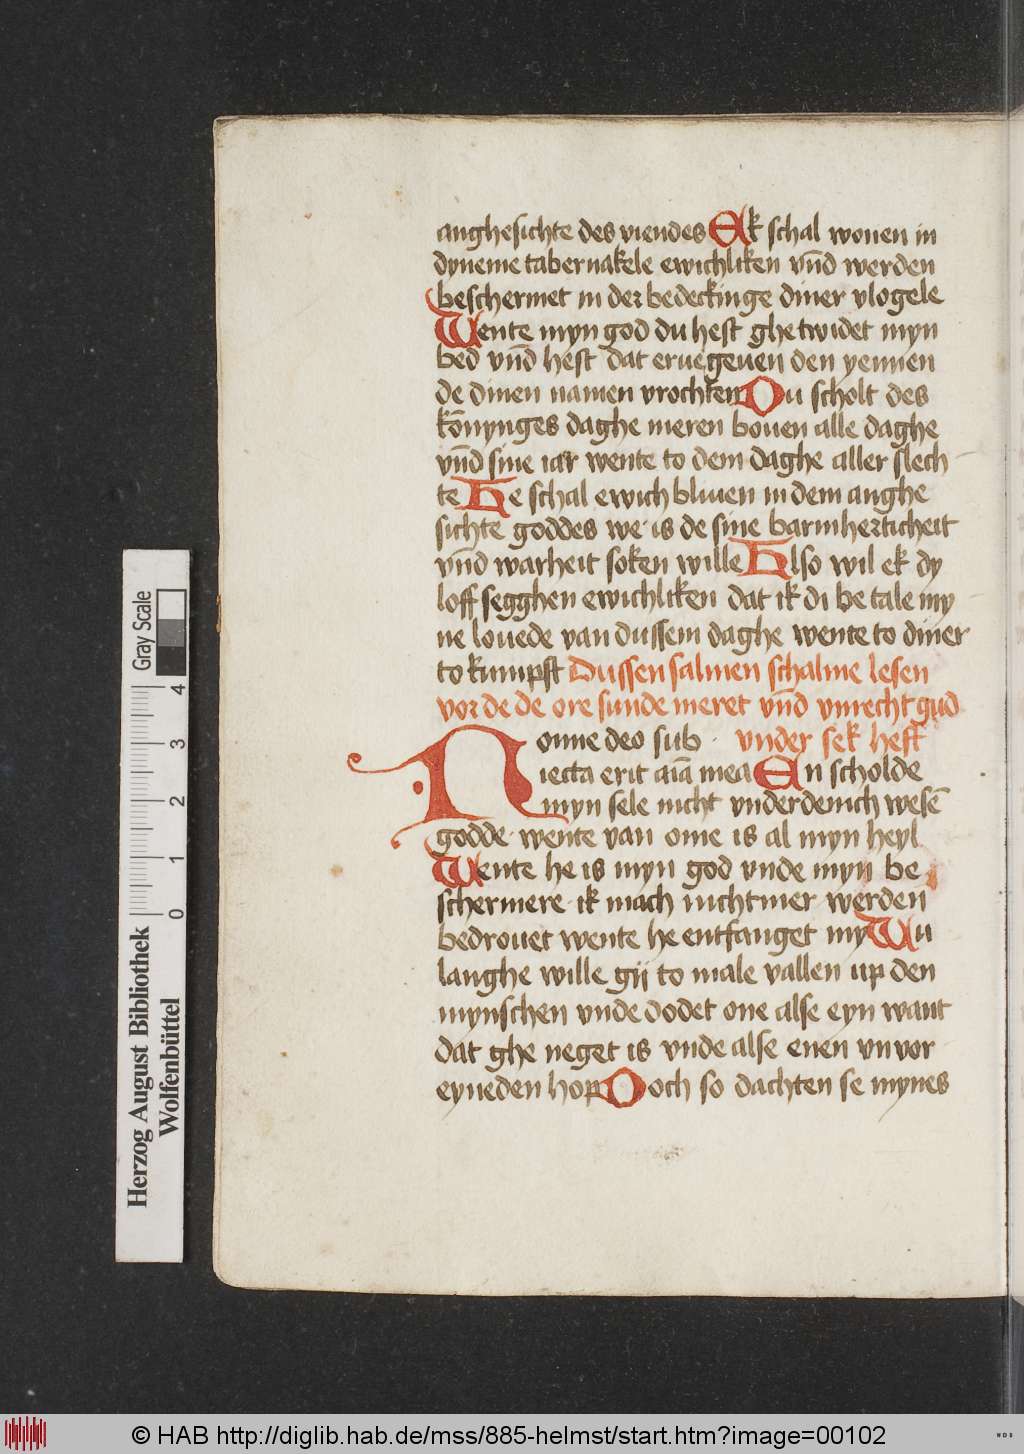 anghesichte des viendes Ek schal wonen in
dyneme tabernakele ewichliken vn̄d werden
beschermet in der bedeckinge diner vlogele
Wente myn god du hest ghetwidet myn
bed vn̄d hest dat eruegeuen den yennen
de dinen namen vrochten Du scholt des
kōnynges daghe meren bouen alle daghe
vn̄d sine iar wente to dem daghe aller slech
te He schal ewich bliuen in dem anghe
sichte goddes we is de sine barmherticheit
vn̄d warheit soken wille Also wil ek dy
loff segghen ewichliken dat ik di betale my
ne louede van dussem daghe wente to diner
tokumpst Dussen salmen schalme lesen
vor de de ore sunde meret vn̄d vnrecht gud
Nonne deo sub vnder sek heft
iecta erit aīa mea En scholde
myn sele nicht vnderdenich wesē
godde wente van ome is al myn heyl
Wente he is myn god vnde myn be
schermere ik mach nicht mer werden
bedrouet wente he entfanget my Wu
langhe wille gij to male vallen up den
mynschen vnde dodet one alse eyn want
dat ghe neget is vnde alse enen vnvor
eyneden hop Doch so dachten se mynes
Gray Scale
4
3
2
1
0
Herzog August Bibliothek
Wolfenbüttel
© HAB http://diglib.hab.de/mss/885-helmst/start.htm?image=00102